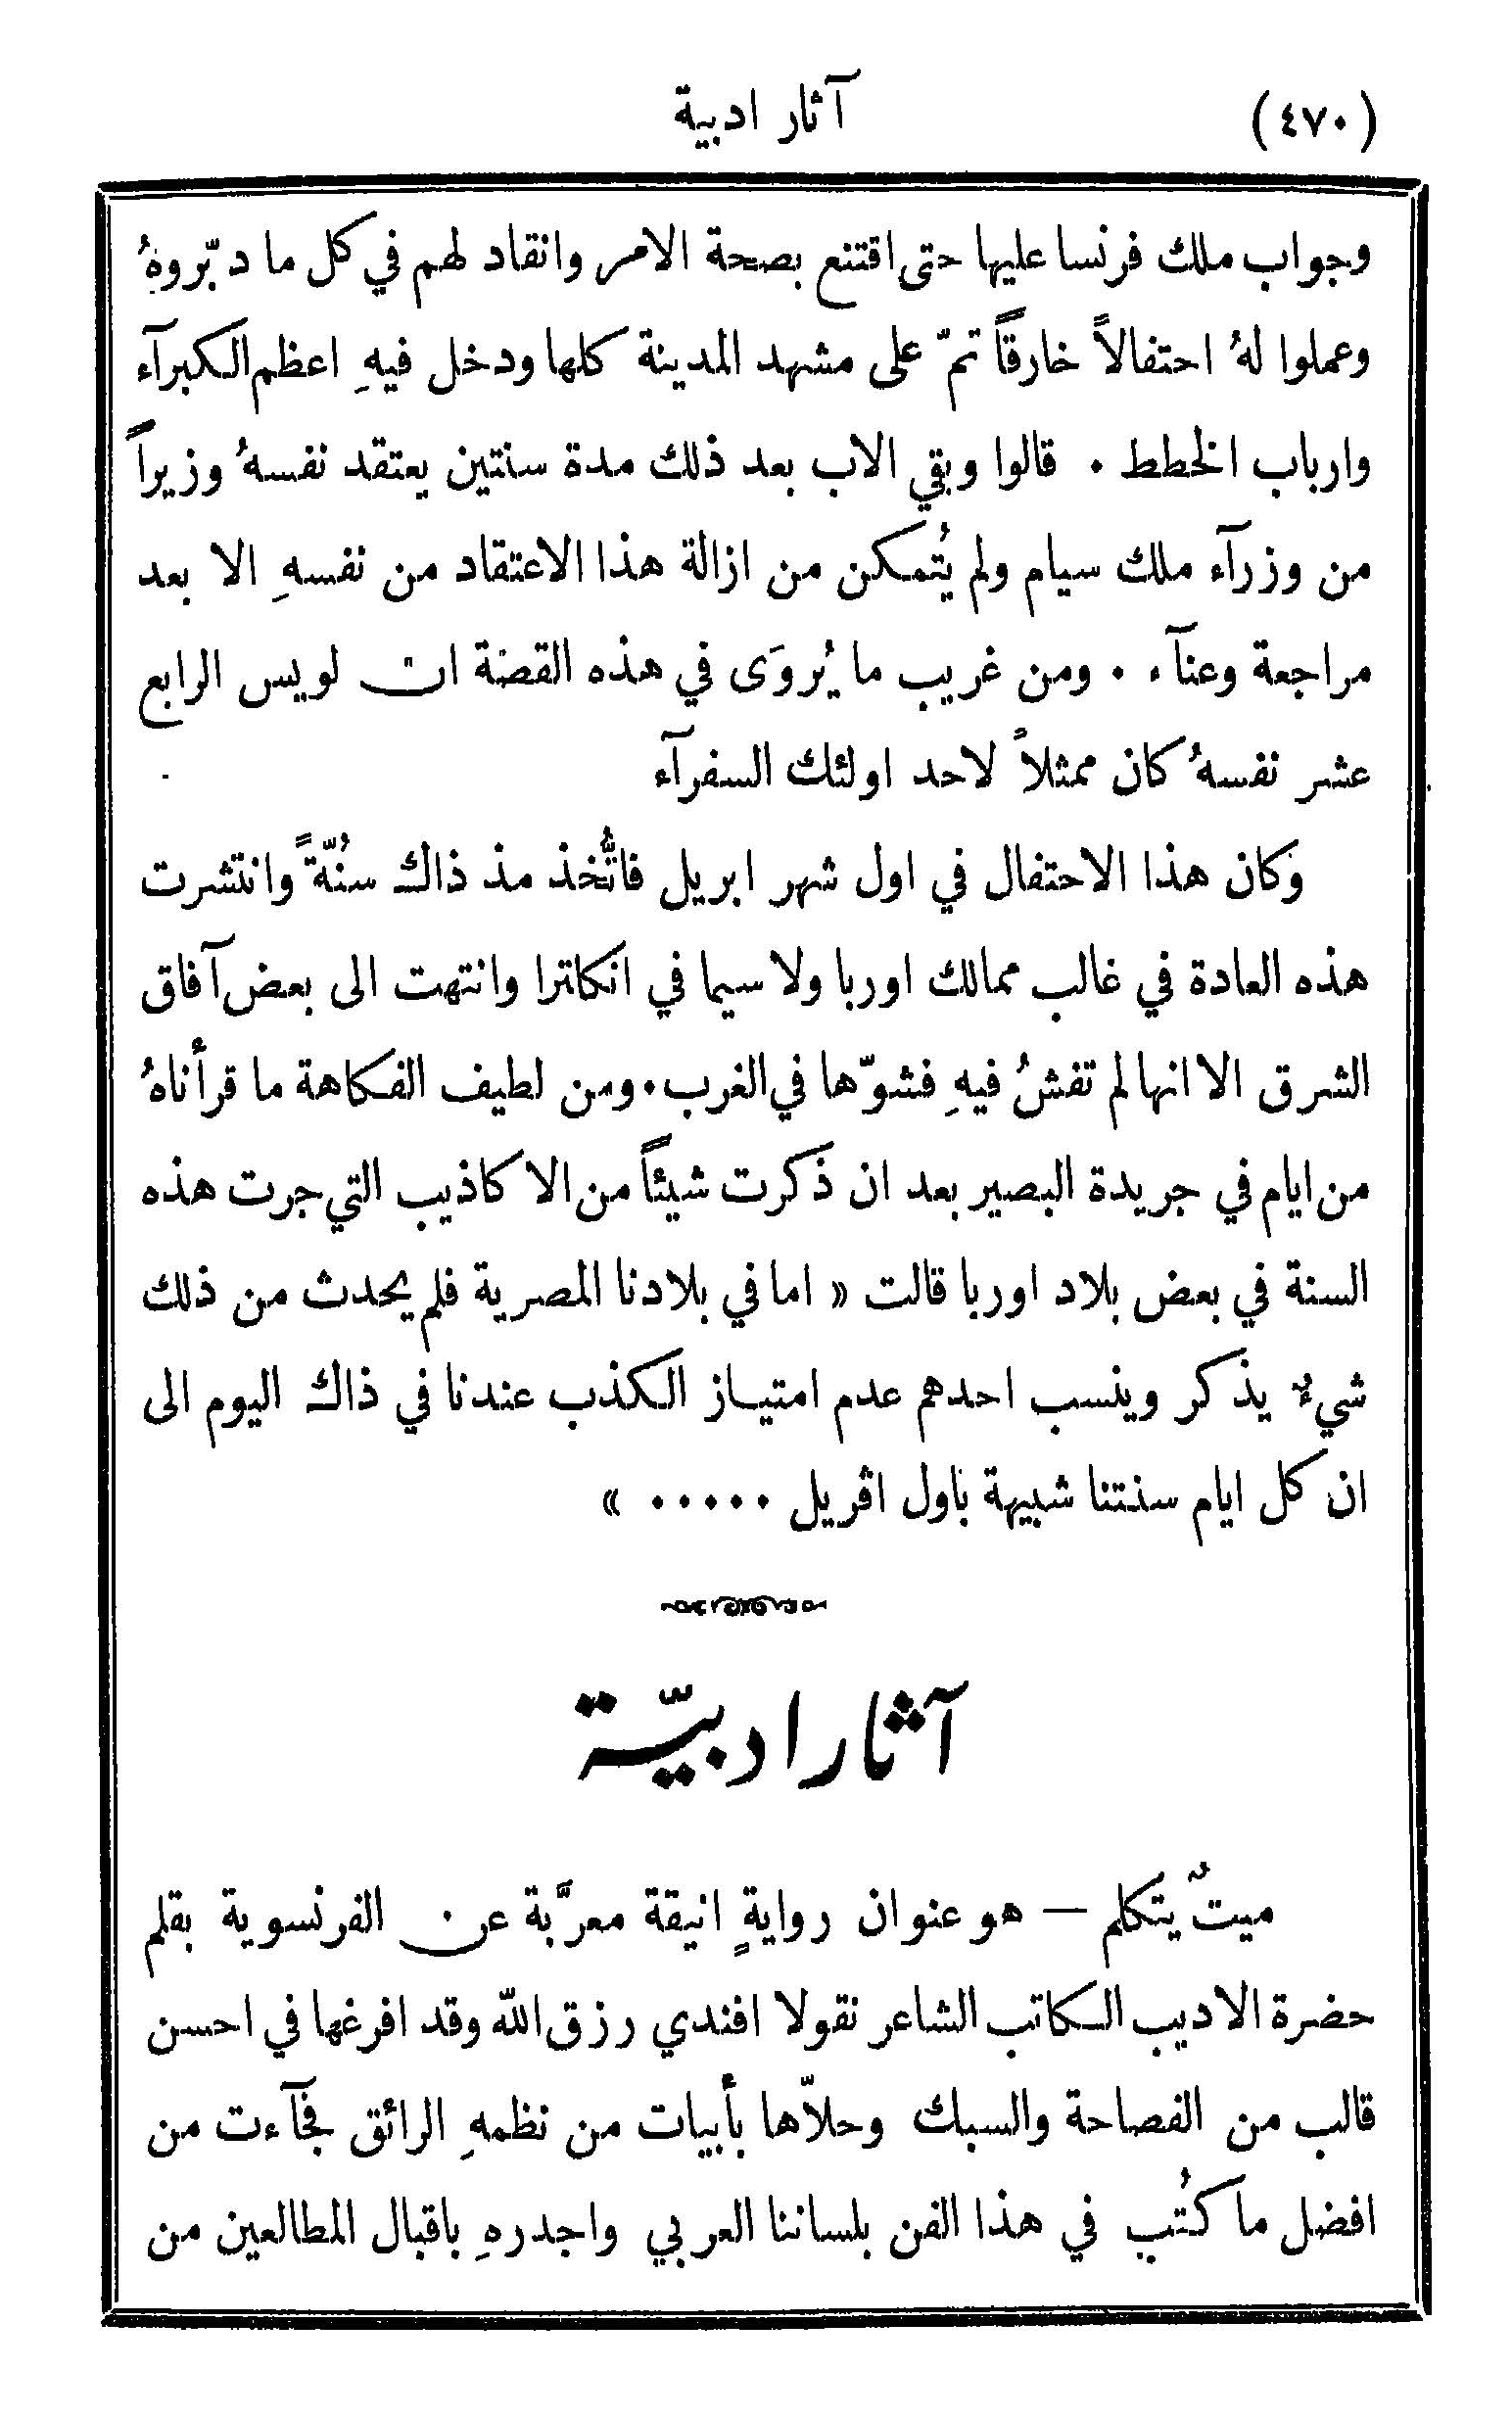 (٤٧٠) آثار ادبية
وجواب ملك فرنسا عليها حتى اقتنع بصحة الامر وانقاد لهم في كل ما دبّروهُ
وعملوا لهُ احتفالاً خارقاً تمّ على مشهد المدينة كلها ودخل فيهِ اعظم الكبرآء
وارباب الخطط . قالوا وبقي الاب بعد ذلك مدة سنتين يعتقد نفسهُ وزيراً
من وزرآء ملك سيام ولم يُتمكن من ازالة هذا الاعتقاد من نفسهِ الا بعد
مراجعة وعنآء . ومن غريب ما يُروَى في هذه القصة ان لويس الرابع
عشر نفسهُ كان ممثلاً لاحد اولئك السفرآء
وكان هذا الاحتفال في اول شهر ابريل فاتُّخذ مذ ذاك سنُّةً وانتشرت
هذه العادة في غالب ممالك اوربا ولا سيما في انكلترا وانتهت الى بعض آفاق
الشرق الا انها لم تفشُ فيهِ فشوّها في الغرب . ومن لطيف الفكاهة ما قرأناهُ
من ايام في جريدة البصير بعد ان ذكرت شيئاً من الاكاذيب التي جرت هذه
السنة في بعض بلاد اوربا قالت « اما في بلادنا المصرية فلم يحدث من ذلك
شيءٌ يذكر وينسب احدهم عدم امتياز الكذب عندنا في ذاك اليوم الى
ان كل ايام سنتنا شبيهة باول اڤريل ..... »
آثار ادبيّة
ميتٌ يتكلم — هو عنوان روايةٍ انيقة معرَّبة عن الفرنسوية بقلم
حضرة الاديب الكاتب الشاعر نقولا افندي رزق الله وقد افرغها في احسن
قالب من الفصاحة والسبك وحلاّها بأبيات من نظمهِ الرائق فجآءت من
افضل ما كُتب في هذا الفن بلساننا العربي واجدرهِ باقبال المطالعين من